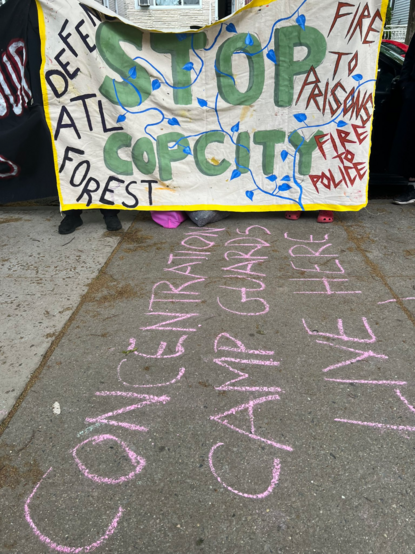 DEFEN
ATL
FOREST
STOP
COP CITY
FIRE
TO
PRISONS
FIRE
TO
POLICE
CONCENTRATION
CAMP GUARDS
LIVE HERE